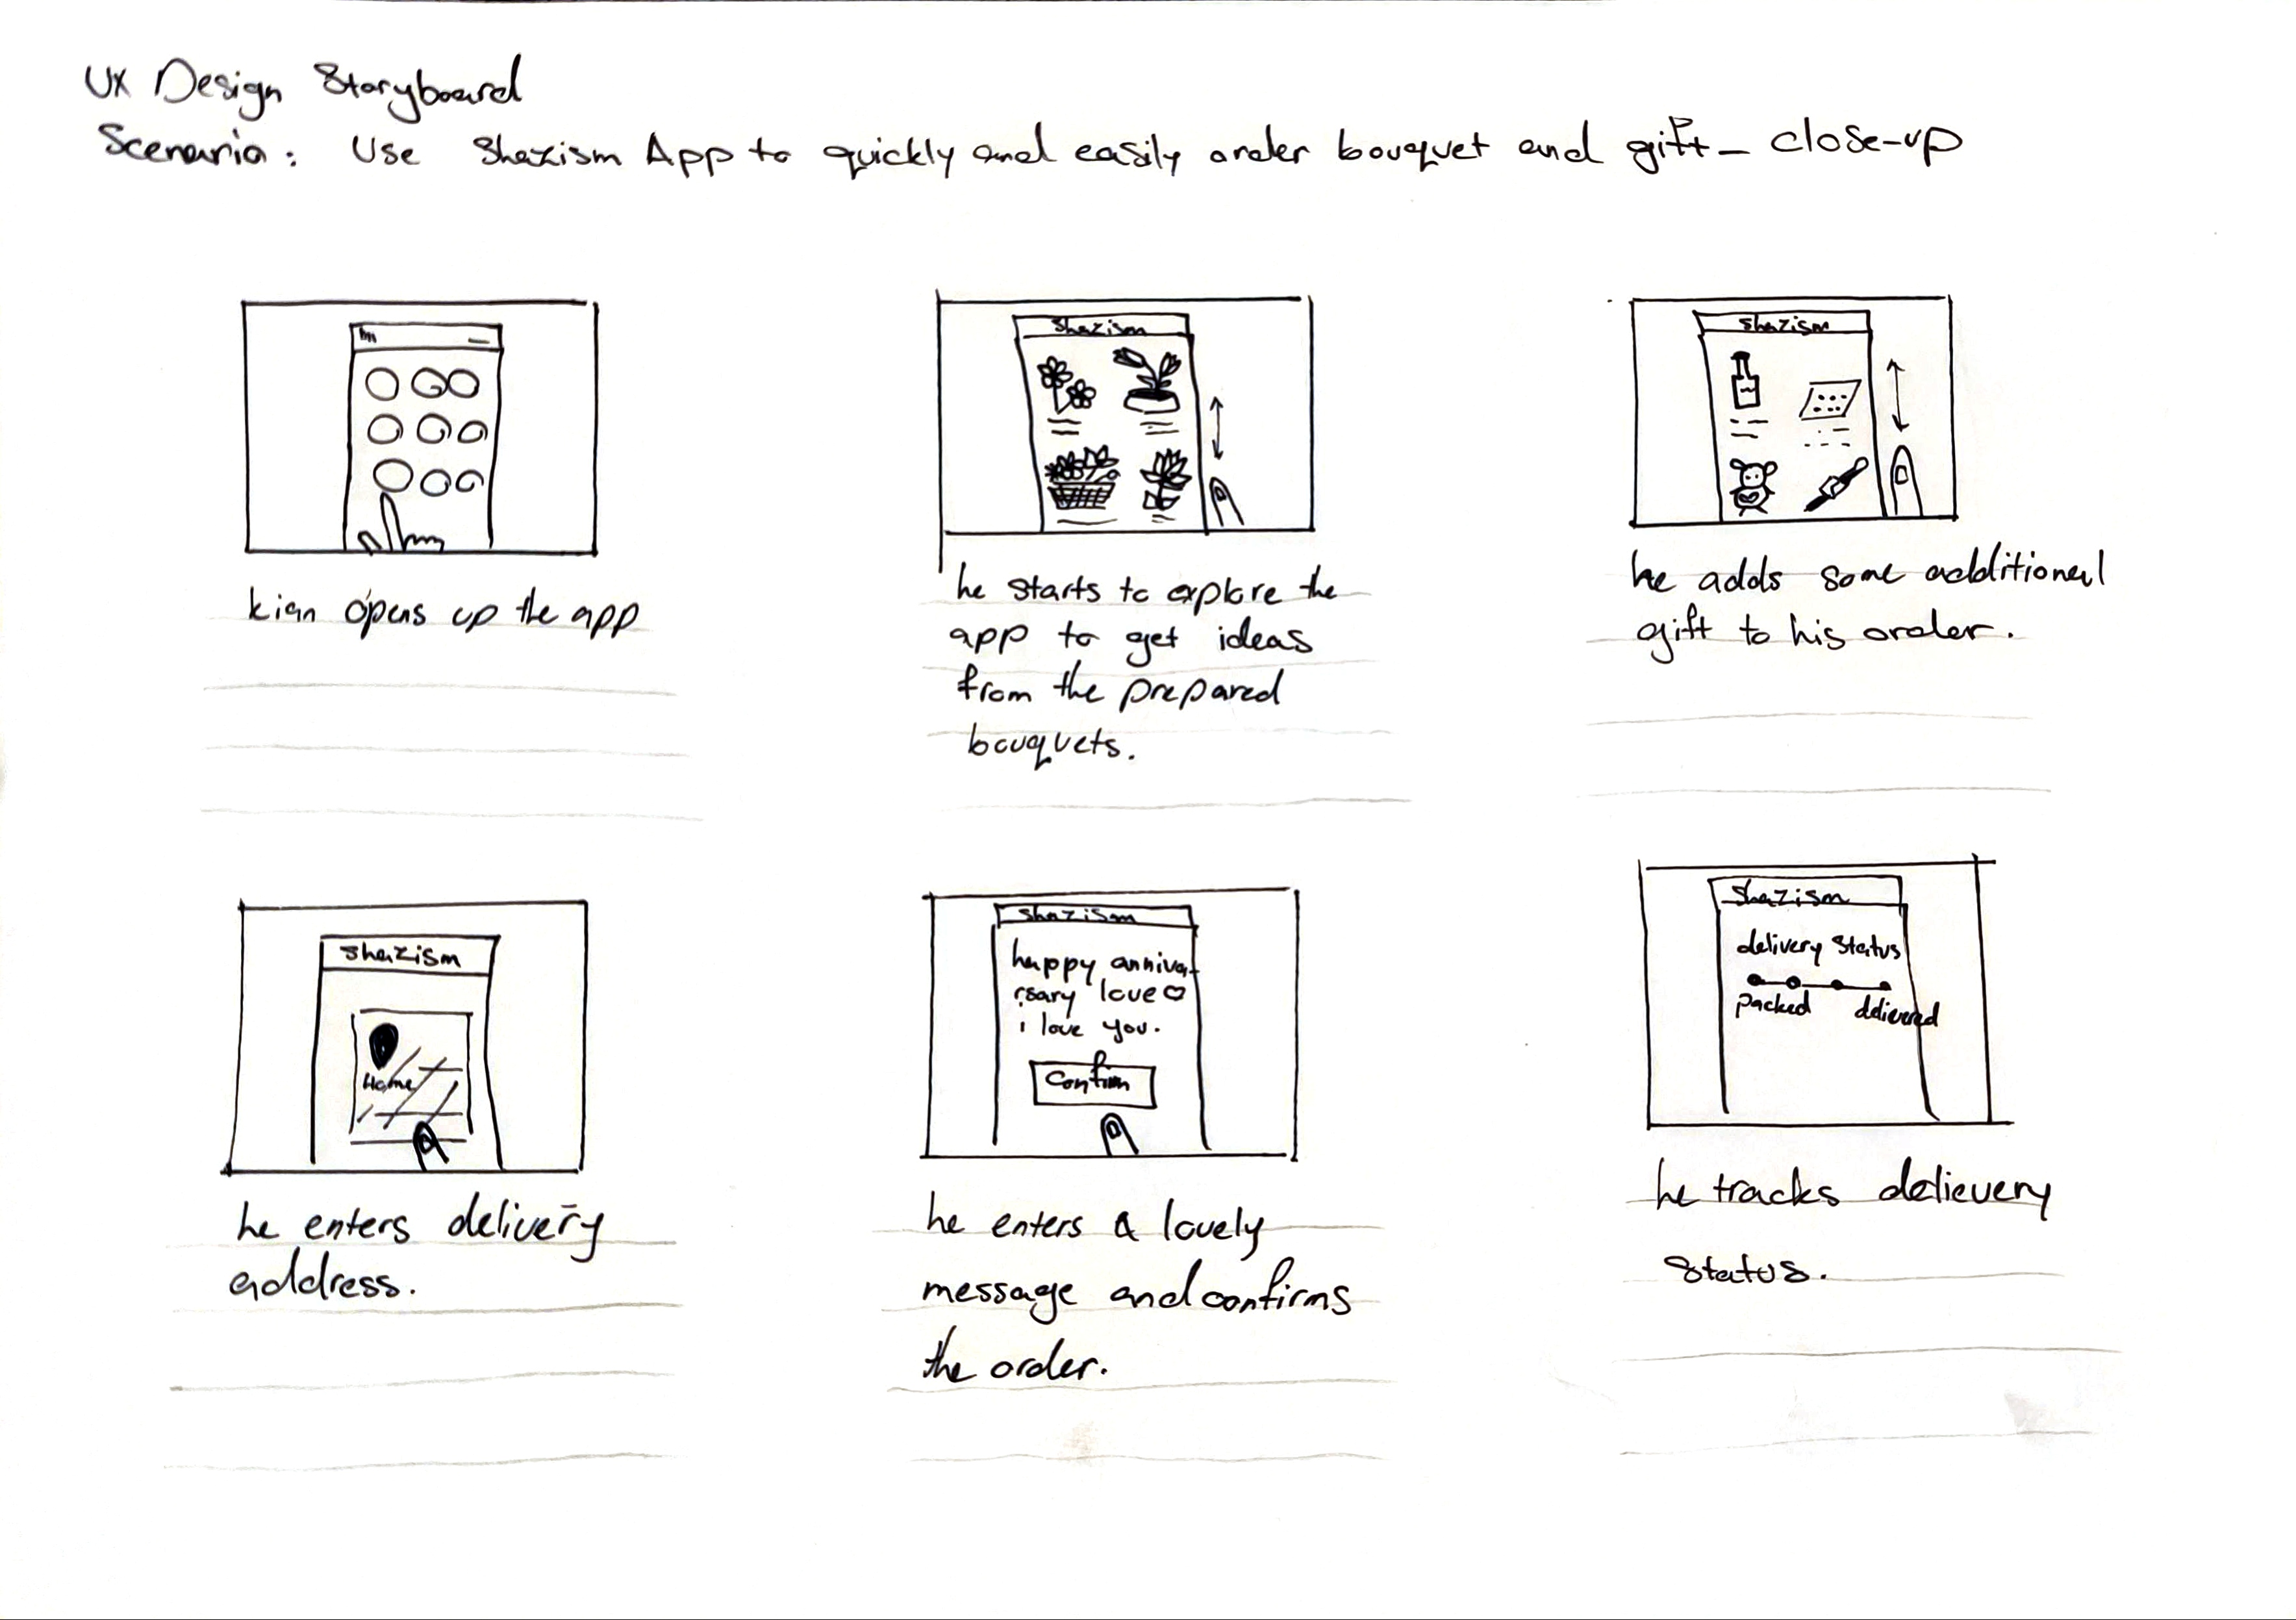 UX Design Storyboard
Scenario: Use Shazism App to quickly and easily order bouquet and gift - close-up
kian opens up the app
Shazism
he starts to explore the
app to get ideas
from the prepared
bouquets.
Shazism
he adds some additional
gift to his order.
Shazism
Home
he enters delivery
address.
Shazism
happy anniva-
rsary love ♡
i love you.
Confirm
he enters a lovely
message and confirms
the order.
Shazism
delivery status
packed delivered
he tracks delievery
status.